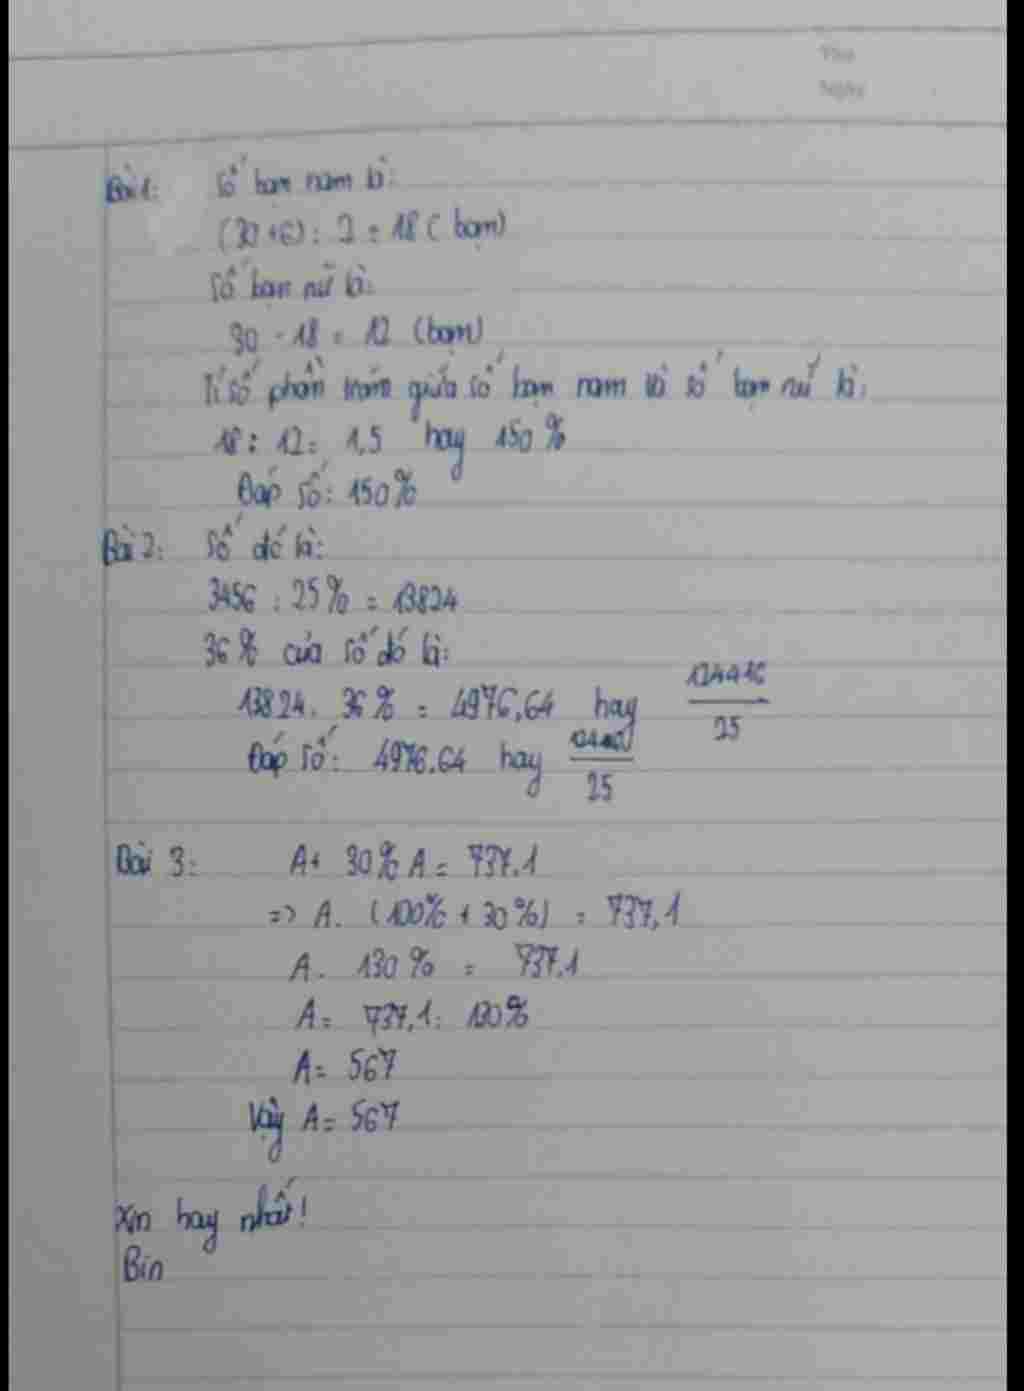 Thứ
Ngày
Bài 1: Số bạn nam là:
(30+6) : 2 = 18 ( bạn)
Số bạn nữ là:
30 - 18 = 12 (bạn)
Tỉ số phần trăm giữa số bạn nam và số bạn nữ là:
18 : 12 = 1,5 hay 150%
Đáp số: 150%
Bài 2: Số đó là:
3456 : 25% = 13824
36% của số đó là:
13824. 36% = 4976,64 hay 124416/25
Đáp số: 4976,64 hay 124416/25
Bài 3: A+ 30% A = 737,1
=> A. (100% + 30%) = 737,1
A. 130% = 737,1
A = 737,1 : 130%
A = 567
Vậy A = 567
Xin hay nhất!
Bin